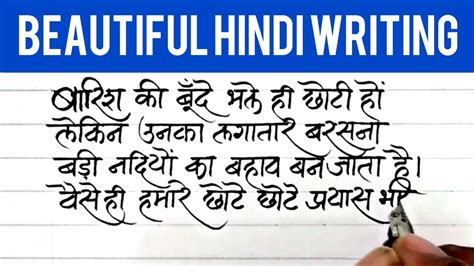 BEAUTIFUL HINDI WRITING
बारिश की बूँदे भले ही छोटी हों
लेकिन उनका लगातार बरसना
बड़ी नदियों का बहाव बन जाता है।
वैसे ही हमारे छोटे छोटे प्रयास भी